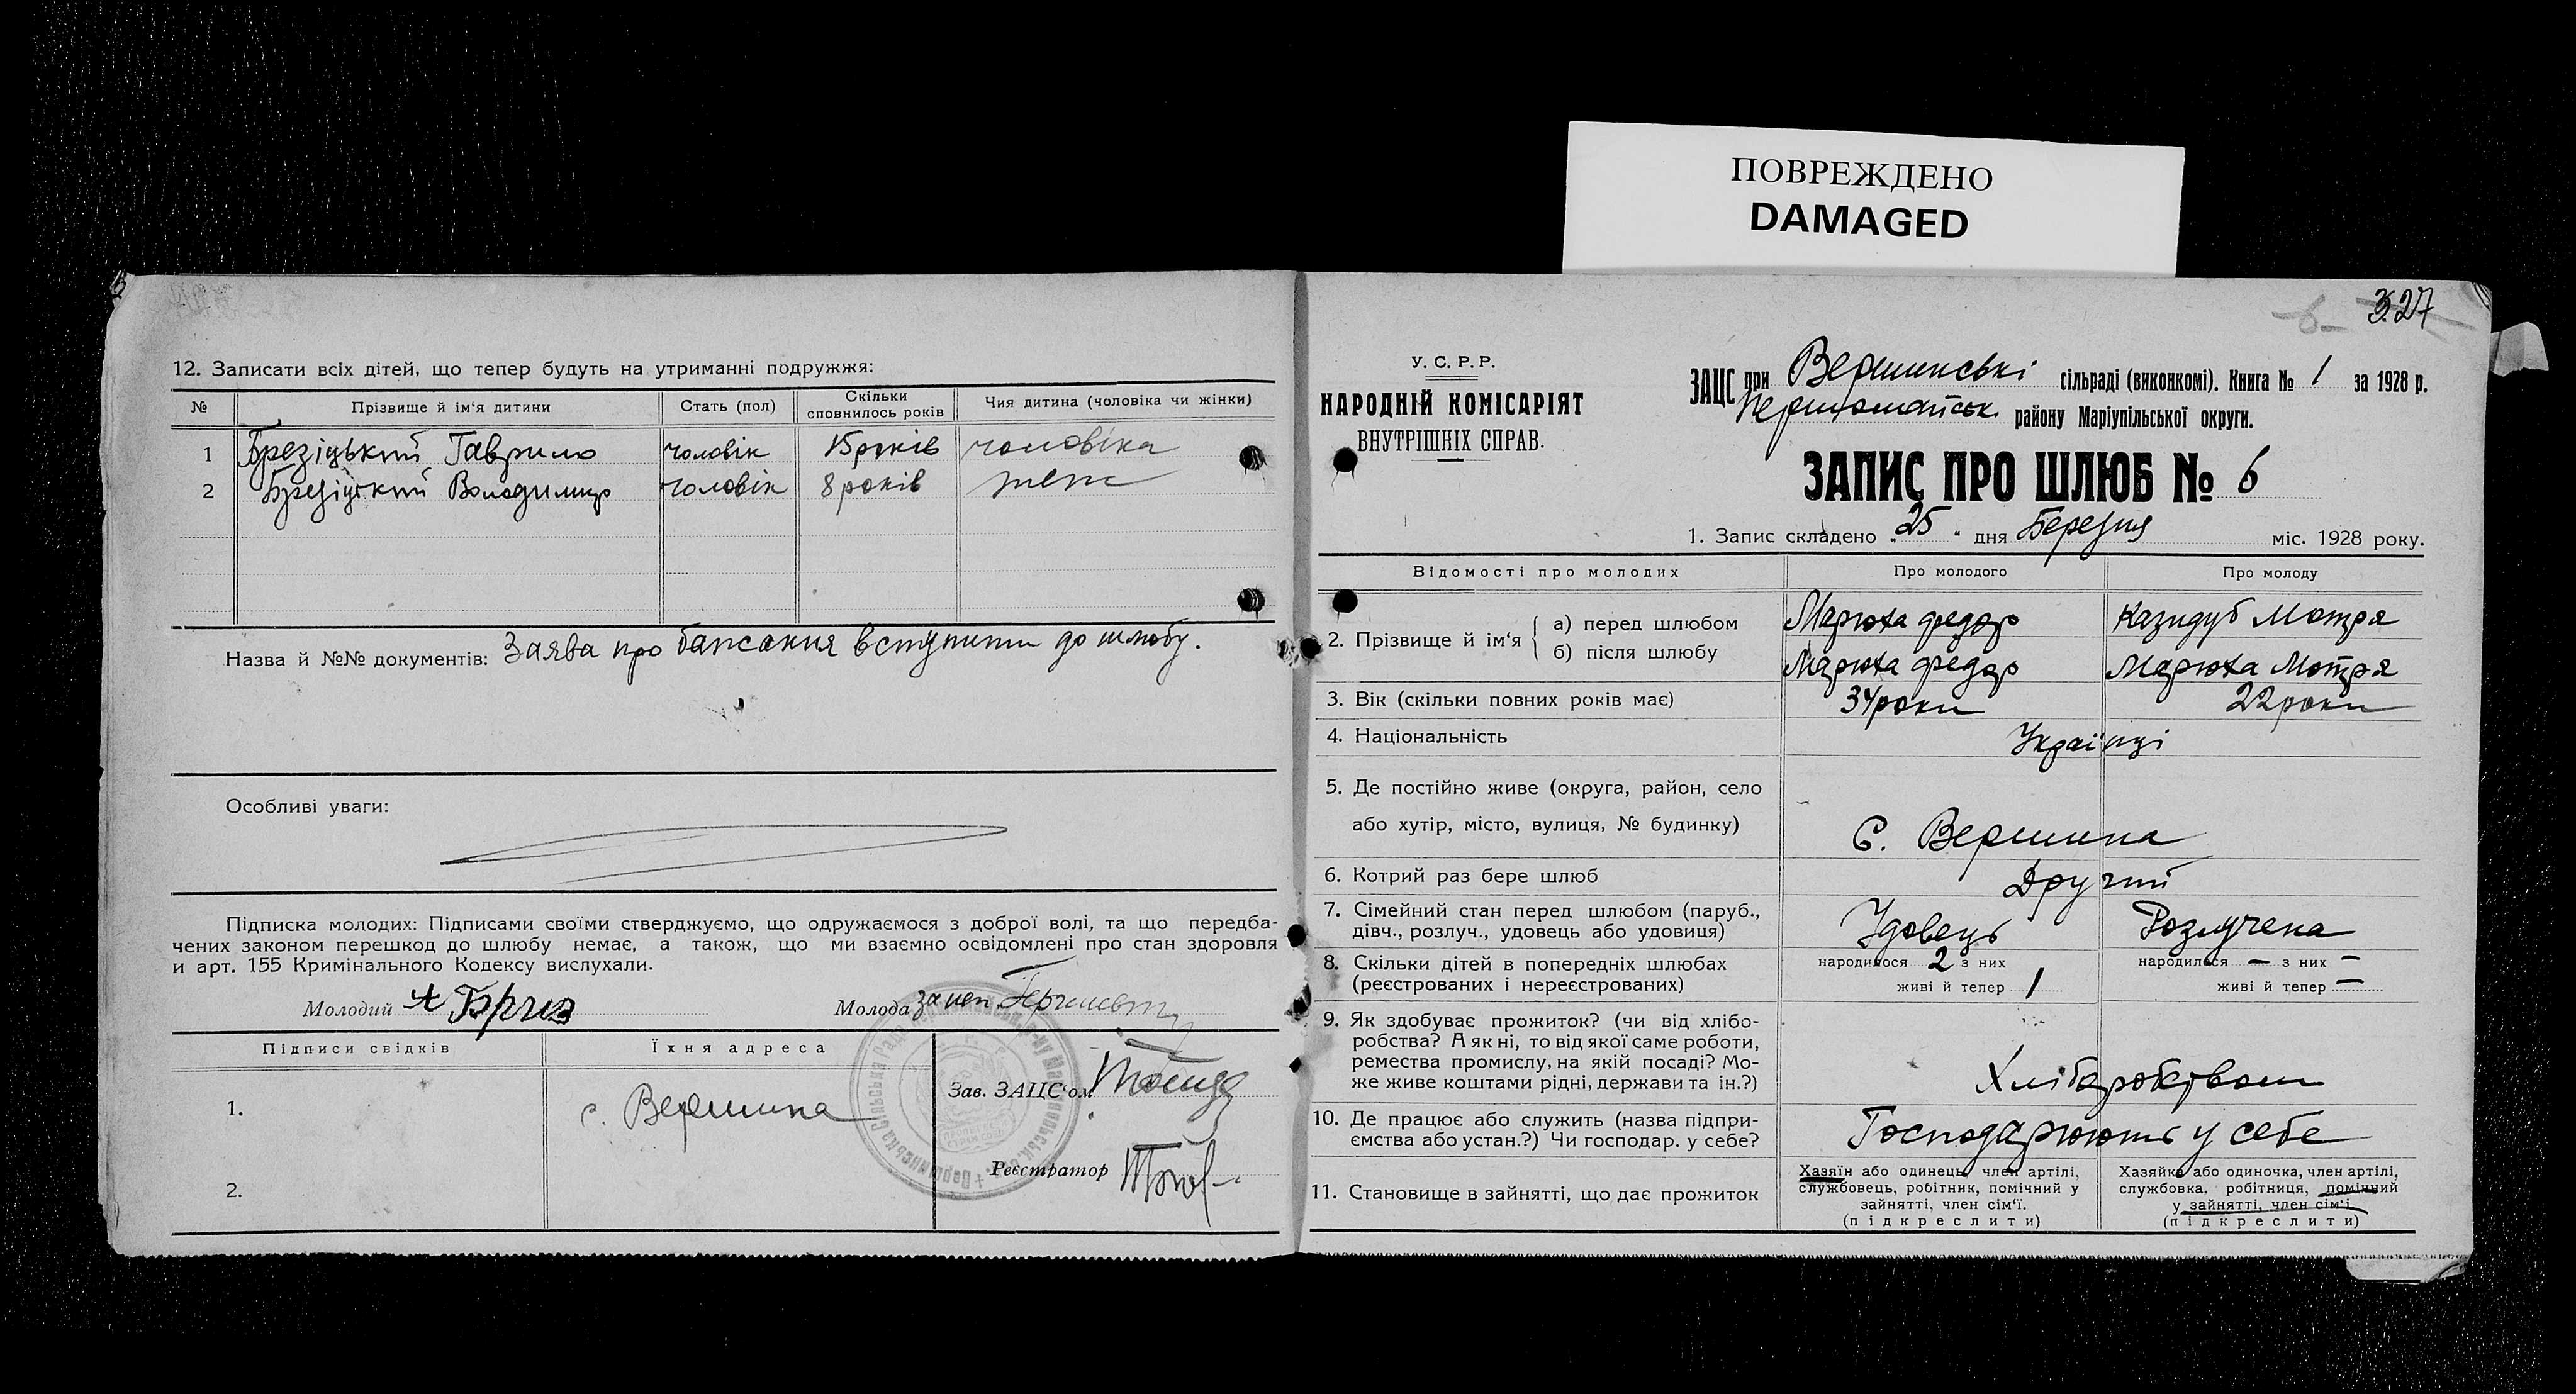 ПОВРЕЖДЕНО
DAMAGED
12. Записати всіх дітей, що тепер будуть на утриманні подружжя:
№ Прізвище й ім'я дитини Стать (пол) Скільки сповнилось років Чия дитина (чоловіка чи жінки)
1 Брезіцький Гаврило чоловік 15 років чоловіка
2 Брезіцький Володимир чоловік 8 років теж
Назва й №№ документів: Заява про бажання вступити до шлюбу.
Особливі уваги:
Підписка молодих: Підписами своїми стверджуємо, що одружаємося з доброї волі, та що передба-
чених законом перешкод до шлюбу немає, а також, що ми взаємно освідомлені про стан здоровля
и арт. 155 Кримінального Кодексу вислухали.
Молодий Молода за неп.
Підписи свідків Їхня адреса
Зав. ЗАЦС'ом
1. с. Вершина
Реєстратор
2.
327
У. С. Р. Р.
НАРОДНІЙ КОМІСАРІЯТ
ВНУТРІШНІХ СПРАВ.
ЗАЦС при Вершинські сільраді (виконкомі). Книга № 1 за 1928 р.
Першомайськ. району Маріупільської округи.
ЗАПИС ПРО ШЛЮБ № 6
1. Запис складено „25" дня Березня міс. 1928 року.
Відомості про молодих Про молодого Про молоду
2. Прізвище й ім'я
а) перед шлюбом Марюха федор Казидуб Мотря
б) після шлюбу Марюха федор Марюха Мотря
3. Вік (скільки повних років має) 34 роки 22 роки
4. Національність Українці
5. Де постійно живе (округа, район, село
або хутір, місто, вулиця, № будинку) С. Вершина
6. Котрий раз бере шлюб Другий
7. Сімейний стан перед шлюбом (паруб.,
дівч., розлуч., удовець або удовиця) Удовець Розлучена
8. Скільки дітей в попередніх шлюбах народилося 2 з них народилося — з них —
(реєстрованих і нереєстрованих) живі й тепер 1 живі й тепер —
9. Як здобуває прожиток? (чи від хлібо-
робства? А як ні, то від якої саме роботи,
ремества промислу, на якій посаді? Мо-
же живе коштами рідні, держави та ін.?) Хліборобством
10. Де працює або служить (назва підпри-
ємства або устан.?) Чи господар. у себе? Господарюють у себе
11. Становище в зайнятті, що дає прожиток
Хазяїн або одинець, член артілі,
службовець, робітник, помічний у
зайнятті, член сім'ї.
(підкреслити)
Хазяйка або одиночка, член артілі,
службовка, робітниця, помічний
у зайнятті, член сім'ї.
(підкреслити)